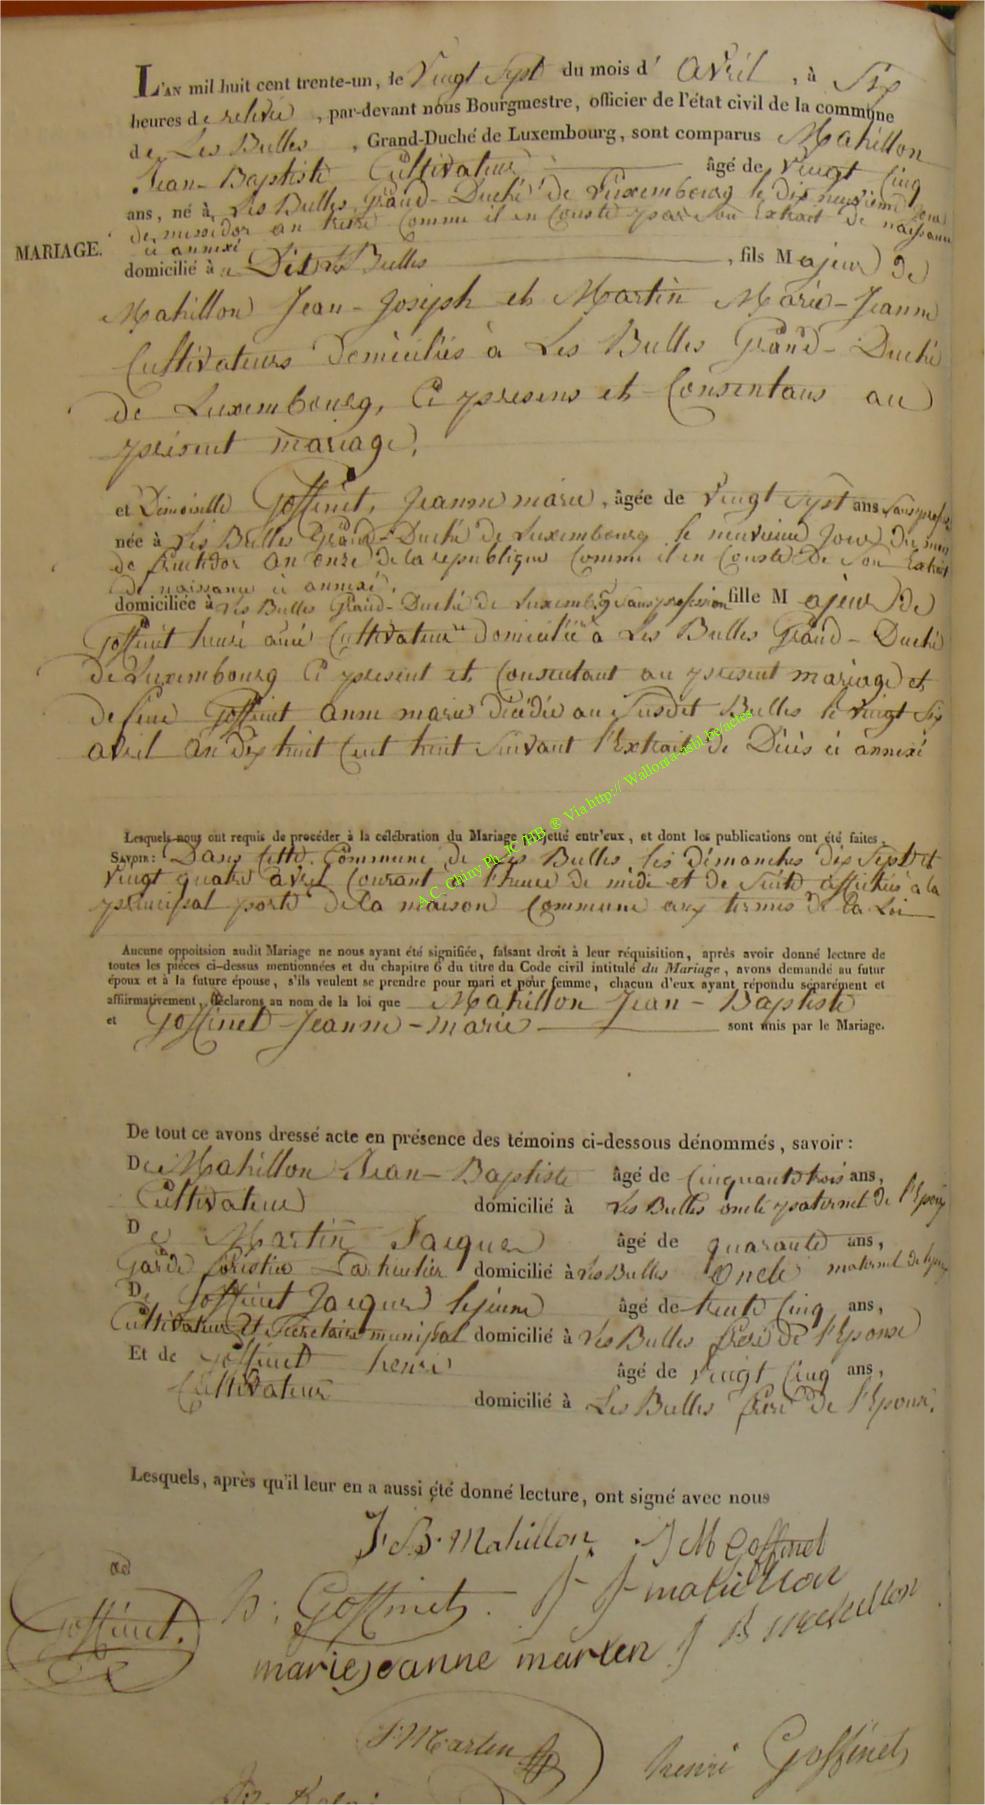 L'AN mil huit cent trente-un, le Vingt Sept du mois d' Avril , à Six
heures de relevée , par-devant nous Bourgmestre, officier de l'état civil de la commune
de Les Bulles , Grand-Duché de Luxembourg, sont comparus Mahillon
Jean-Baptiste Cultivateur âgé de Vingt Cinq
ans, né à Les Bulles Grand-Duché de Luxembourg le dix neuvième jour
de messidor an treize comme il en Conste par son Extrait de naissance
ci annexé
MARIAGE.
domicilié à Dit Les Bulles , fils Majeur de
Mahillon Jean-Joseph et Martin Marie-Jeanne
Cultivateurs Domiciliés à Les Bulles Grand-Duché
de Luxembourg, Ci presens et Consentans au
présent mariage,
et Demoiselle Goffinet, Jeanne marie, âgée de Vingt Sept ans Sans profes
née à Les Bulles Grand-Duché de Luxembourg le neuvieme Jour du mois
de fructidor an onze de la republique comme il en Conste de Son Extrait
de naissance ci annexé,
domiciliée à Les Bulles Grand-Duché de Luxembg Sans profession fille Majeur de
Goffinet henri ainé Cultivateur domicilié à Les Bulles Grand-Duché
de Luxembourg Ci present et Consentant au present mariage et
de feue Goffinet anne marie Décédée au Susdit Bulles le vingt Six
avril an dix huit Cent huit Suivant l'Extrait de Décès ci annexé
Lesquels nous ont requis de procéder à la célébration du Mariage projetté entr'eux, et dont les publications ont été faites,
SAVOIR: Dans Cette Commune de Les Bulles les dimanches dix Sept et
Vingt quatre avril Courant à l'heure de midi et de Suite affichés à la
principal porte de la maison Commune aux termes de la Loi
Aucune oppoitsion audit Mariage ne nous ayant été signifiée, faisant droit à leur réquisition, après avoir donné lecture de
toutes les pièces ci-dessus mentionnées et du chapitre 6 du titre du Code civil intitulé du Mariage, avons demandé au futur
époux et à la future épouse, s'ils veulent se prendre pour mari et pour femme, chacun d'eux ayant répondu séparément et
affiirmativement, déclarons au nom de la loi que Mahillon Jean-Baptiste
et Goffinet Jeanne-marie sont unis par le Mariage.
De tout ce avons dressé acte en présence des témoins ci-dessous dénommés, savoir:
De Mahillon Jean-Baptiste âgé de Cinquante trois ans,
Cultivateur domicilié à Les Bulles oncle paternel de l'Epoux
De Martin Jacques âgé de quarante ans,
Garde forestier Particulier domicilié à Les Bulles Oncle maternel de lepoux
De Goffinet Jacques lejeune âgé de trente Cinq ans,
Cultivateur et Secretaire municipal domicilié à Les Bulles frere de l'Epouse
Et de Goffinet henri âgé de vingt Cinq ans,
Cultivateur domicilié à Les Bulles frere de l'Epouse.
Lesquels, après qu'il leur en a aussi été donné lecture, ont signé avec nous
J B Mahillon J M Goffinet
h: Goffinet J J mahillon
Goffinet.
marie jeanne marten J B Mahillon
J Marten henri Goffinet
A.C. Chiny Ph. JC HB ® Via http:// Wallonia-asbl.be/actes